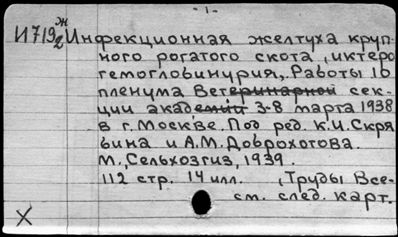 - 1 -
ж
И719₂ Инфекционная желтуха круп-
ного рогатого скота, иктеро
гемоглобинурия, Работы 10
пленума Ветеринарной сек-
ции академии 3-8 марта 1938
в г. Москве. Под ред. К.И. Скря
бина и А.М. Доброхотова.
М., Сельхозгиз, 1939.
112 стр. 14 илл. (Труды Все-
см. след. карт.
X